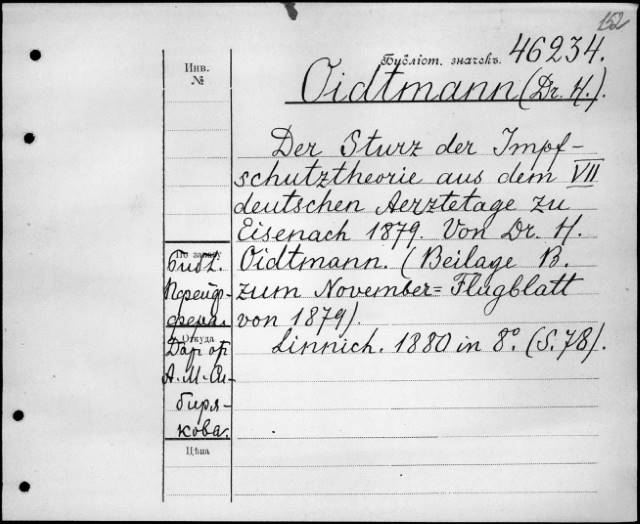 152
Библіот. значекъ. 46234.
Инв.
№
Oidtmann (Dr. H.).
Der Sturz der Impf-
schutztheorie aus dem VII
deutschen Aerztetage zu
Eisenach 1879. Von Dr. H.
Oidtmann. (Beilage B.
zum November= Flugblatt
von 1879).
Linnich. 1880 in 8°. (S. 78).
По заказу
Библ.
Пфейф-
фера.
Откуда
Дар от
А. М. Си-
биря-
кова.
Цѣна